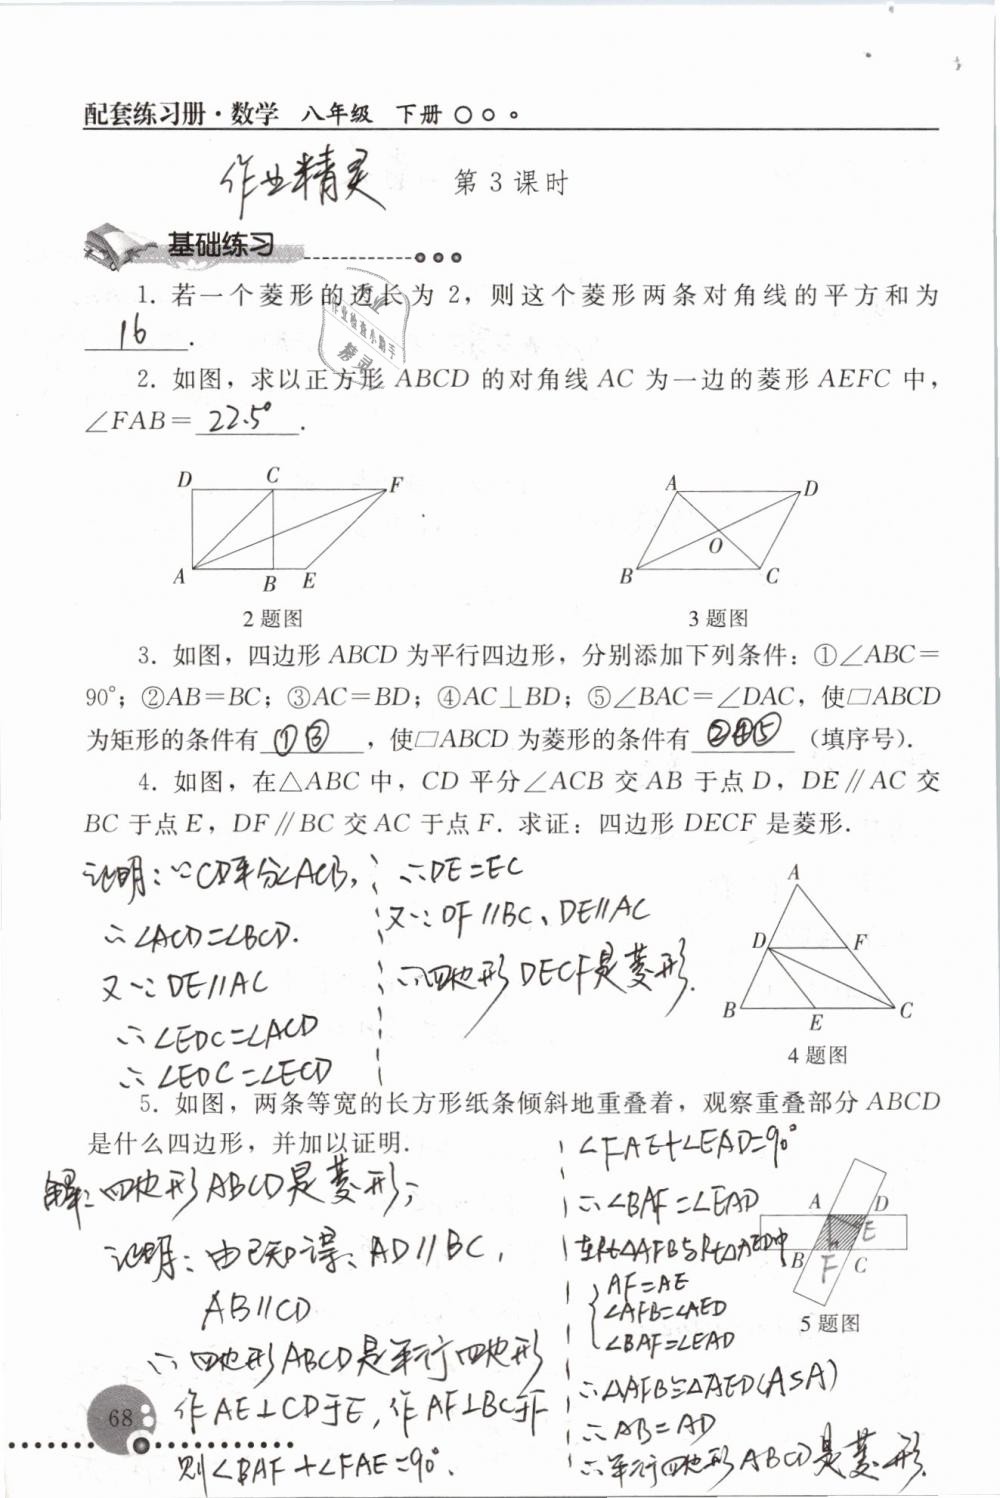 配套练习册·数学 八年级 下册
作业精灵 第3课时
基础练习
1. 若一个菱形的边长为 2，则这个菱形两条对角线的平方和为
16 .
作业检查小助手
精灵
2. 如图，求以正方形 ABCD 的对角线 AC 为一边的菱形 AEFC 中，
∠FAB= 22.5° .
D C F
A B E
2题图
A D
O
B C
3题图
3. 如图，四边形 ABCD 为平行四边形，分别添加下列条件：①∠ABC=
90°；②AB=BC；③AC=BD；④AC⊥BD；⑤∠BAC=∠DAC，使□ABCD
为矩形的条件有 ①③ ，使□ABCD 为菱形的条件有 ②④⑤ （填序号）.
4. 如图，在△ABC 中，CD 平分∠ACB 交 AB 于点 D，DE∥AC 交
BC 于点 E，DF∥BC 交 AC 于点 F. 求证：四边形 DECF 是菱形.
证明：∵CD平分∠ACB，
∴∠ACD=∠BCD.
又∵DE//AC
∴∠EDC=∠ACD
∴∠EDC=∠ECD
∴DE=EC
又∵DF//BC、DE//AC
∴四边形DECF是菱形.
A
D F
B E C
4题图
5. 如图，两条等宽的长方形纸条倾斜地重叠着，观察重叠部分 ABCD
是什么四边形，并加以证明.
解：四边形ABCD是菱形；
证明：由已知得：AD//BC，
AB//CD
∴四边形ABCD是平行四边形
作AE⊥CD于E，作AF⊥BC于F
则∠BAF+∠FAE=90°.
∠FAE+∠EAD=90°
∴∠BAF=∠EAD
在Rt△AFB与Rt△AED中
AF=AE
∠AFB=∠AED
∠BAF=∠EAD
∴△AFB≌△AED(ASA)
∴AB=AD
∴平行四边形ABCD是菱形.
A D
E
B F C
5题图
68